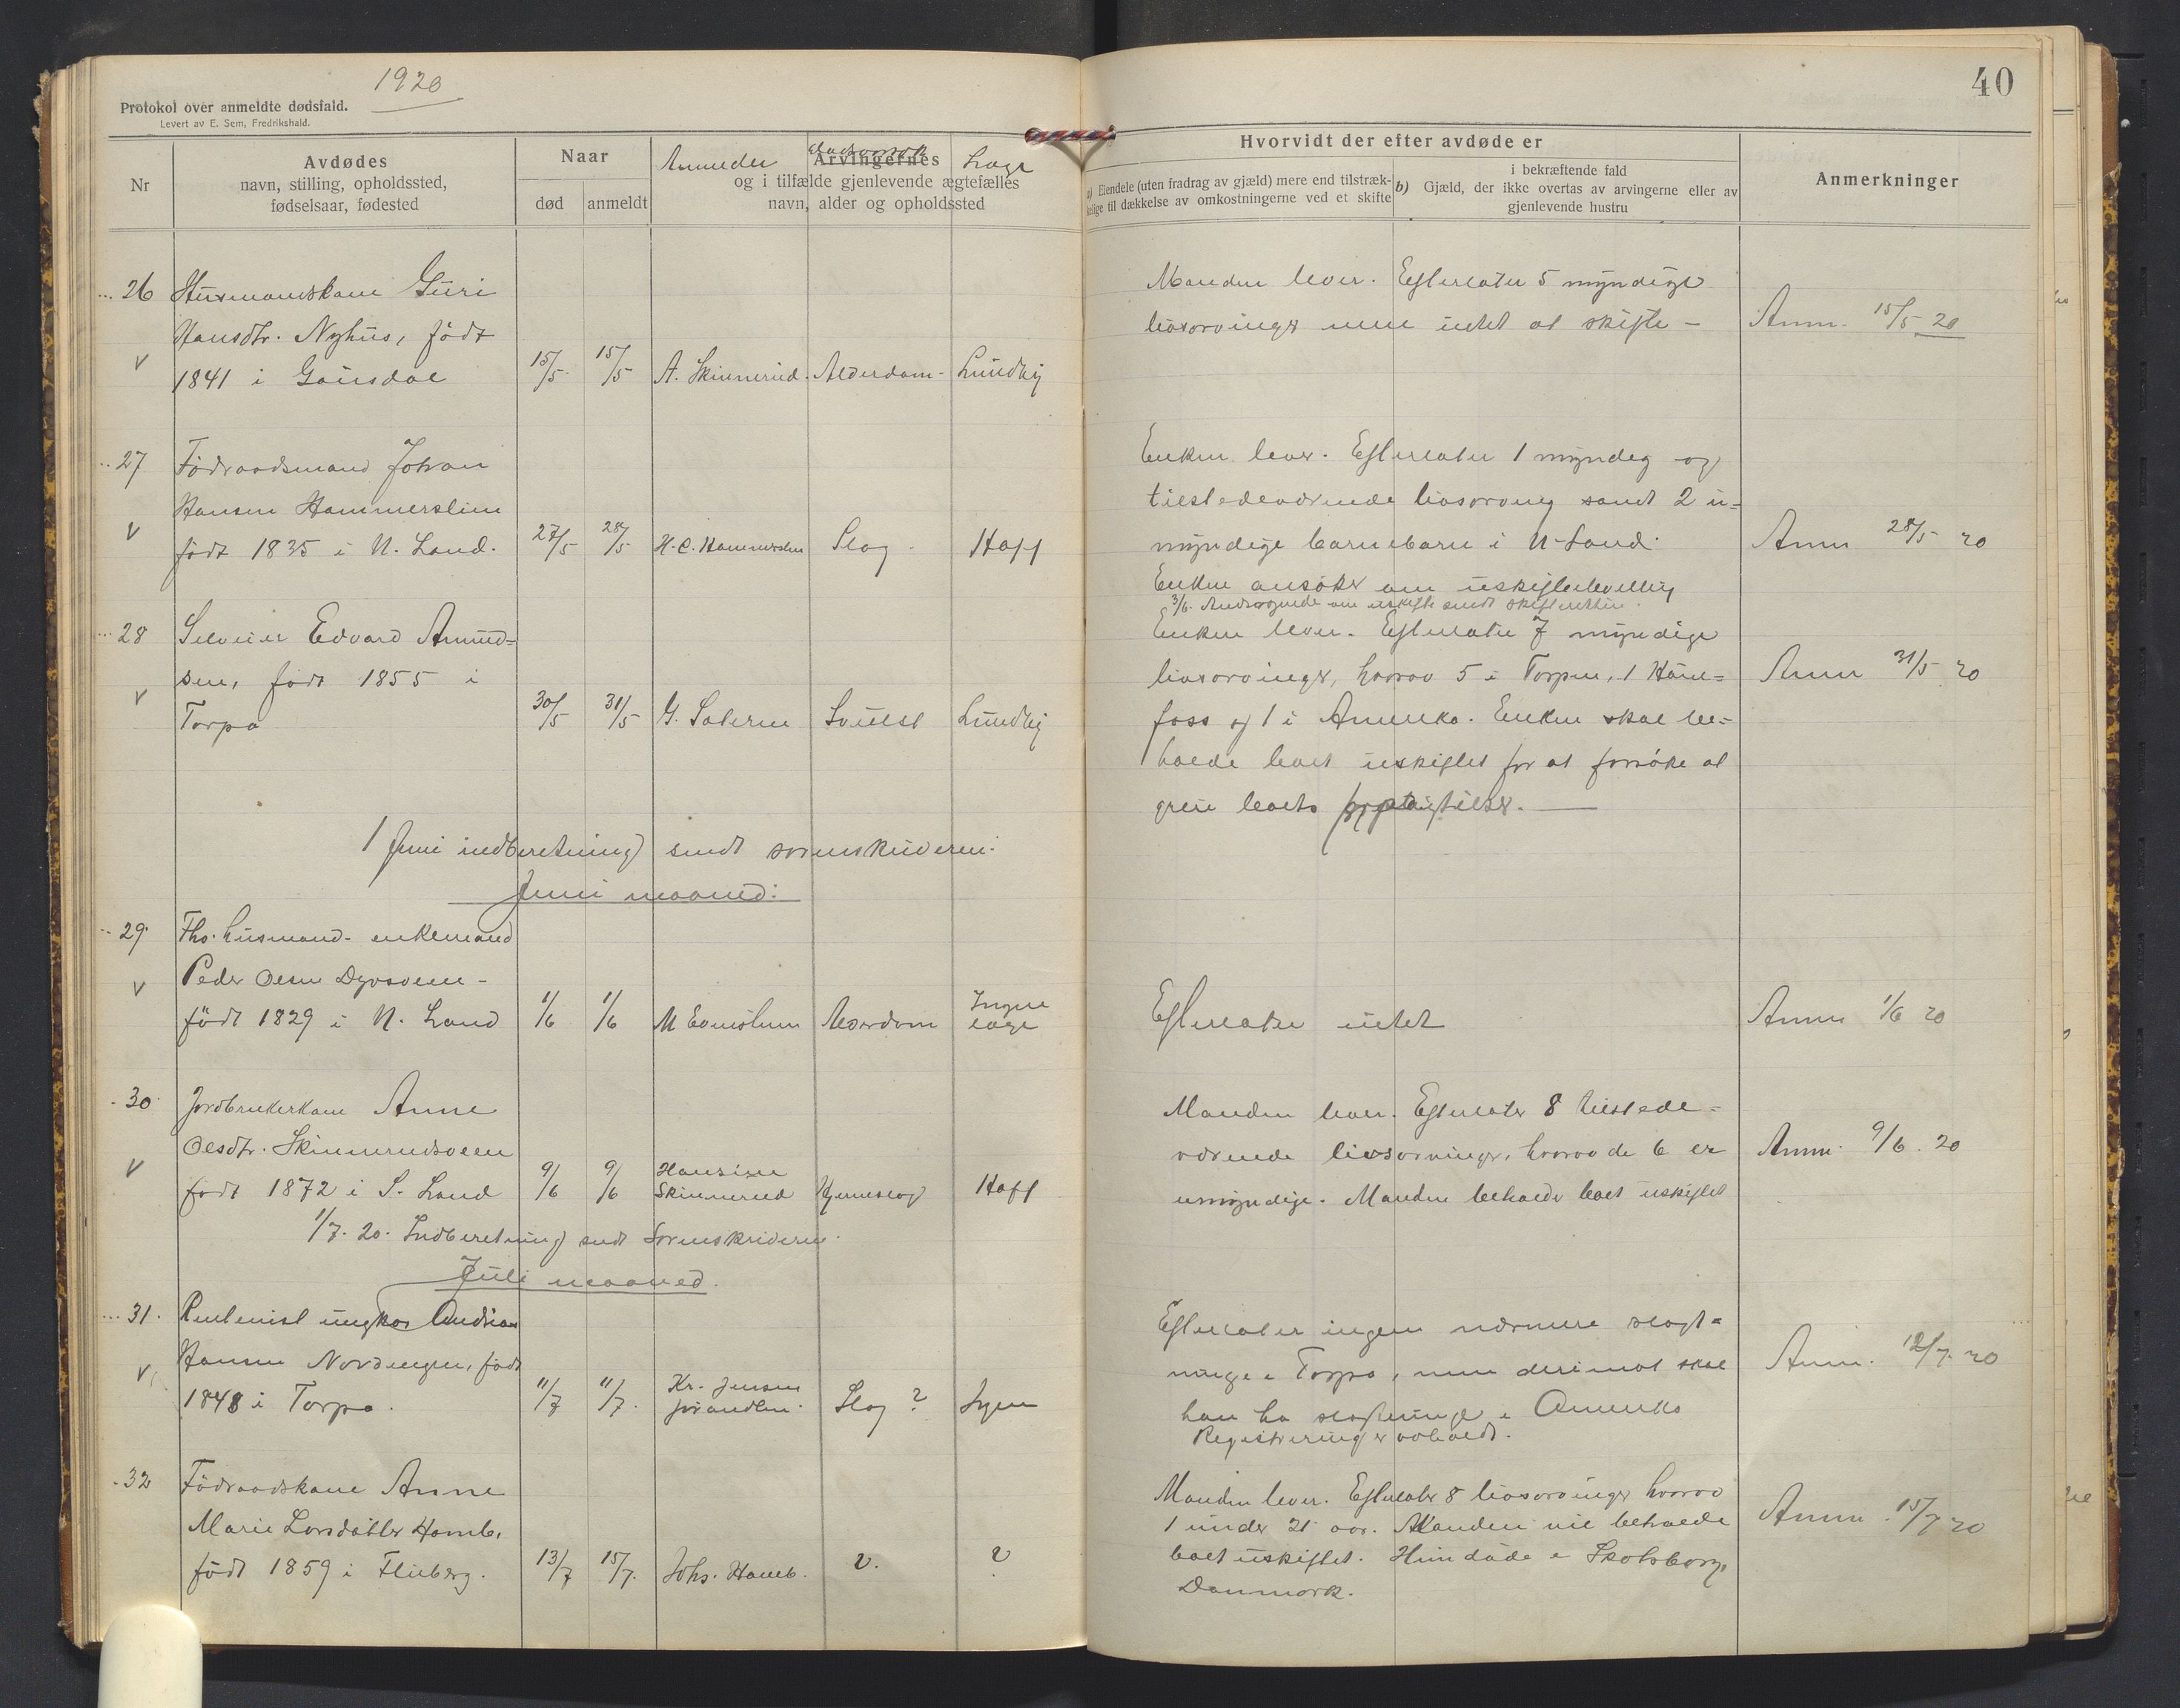 1920
Protokol over anmeldte dødsfald.
Levert av E. Sem, Fredrikshald.
40
Nr
Avdødes
navn, stilling, opholdssted,
fødselsaar, fødested
Naar
død
anmeldt
Anmelder Læge
Arvingernes
og i tilfælde gjenlevende ægtefælles
navn, alder og opholdssted
Hvorvidt der efter avdøde er
a) Eiendele (uten fradrag av gjæld) mere end tilstræk-
kelige til dækkelse av omkostningerne ved et skifte
i bekræftende fald
b) Gjæld, der ikke overtas av arvingerne eller av
gjenlevende hustru
Anmerkninger
26 Husmandskone Guri
Hansdtr. Nyhus, født
v 1841 i Gausdal 15/5 15/5 A. Skinnerud. Alderdom- Lundby
Manden lever. Efterlater 5 myndige
livsarvinger men intet at skifte -
Anm. 15/5 20
27 Födraadsmand Johan
Hansen Hammerslien
v født 1835 i N. Land. 27/5 28/5 H. C. Hammerslien Slag. Hoff
Enken lever. Efterlater 1 myndig og
tilstedeværende livsarving samt 2 u=
myndige barnebarn i N-Land.
Enken ansøker om uskiftebevilling
3/6. Andragende om uskifte sendt skifteretten.
Anm 28/5 20
28 Selveier Edvard Amund=
sen, født 1855 i
v Torpa 30/5 31/5 G. Lundby
Enken lever. Efterlater 7 myndige
livsarvinger, hvorav 5 i Torpen, 1 Høne=
foss og 1 i Amerika. Enken skal be=
holde boet uskiftet for at forsøke at
greie boets forpligtelser.
Anm 31/5 20
1 Juni indberetning sendt sorenskriveren.
Juni maaned:
29 Fhv. husmand- enkemand
Peder Olsen
v født 1829 i N. Land 1/6 1/6 M Alderdom Ingen læge
Efterlater intet
Anm 1/6 20
30 Jordbrukerkone Anne
Olsdtr. Skinnerudsveen
v født 1872 i S. Land 9/6 9/6 Hansine Skinnerud Hjerneslag Hoff
Manden lever. Efterlater 8 tilstede=
værende livsarvinger, hvorav de 6 er
umyndige. Manden beholder boet uskiftet
Anm. 9/6. 20
1/7. 20. Indberetning sendt Sorenskriveren.
Juli maaned.
31. Rentenist ungkar Andrias
Hansen Nordengen, født
v 1848 i Torpa. 11/7 11/7. Kr. Jensen Slag? Ingen
Efterlater ingen nærmere slegt=
ninge i Torpa, men derimot skal
han ha slegtninge i Amerika
Registrering er avholdt.
Anm. 12/7 20
32 Födraadskone Anne
Marie Larsdatter Homb,
født 1859 i Fluberg. 13/7 15/7. Johs. Homb. ?. ?
Manden lever. Efterlater 8 livsarvinger hvorav
1 under 21 aar. Manden vil beholde
boet uskiftet. Hun døde i Skodsborg,
Danmark.
Anm. 15/7 20